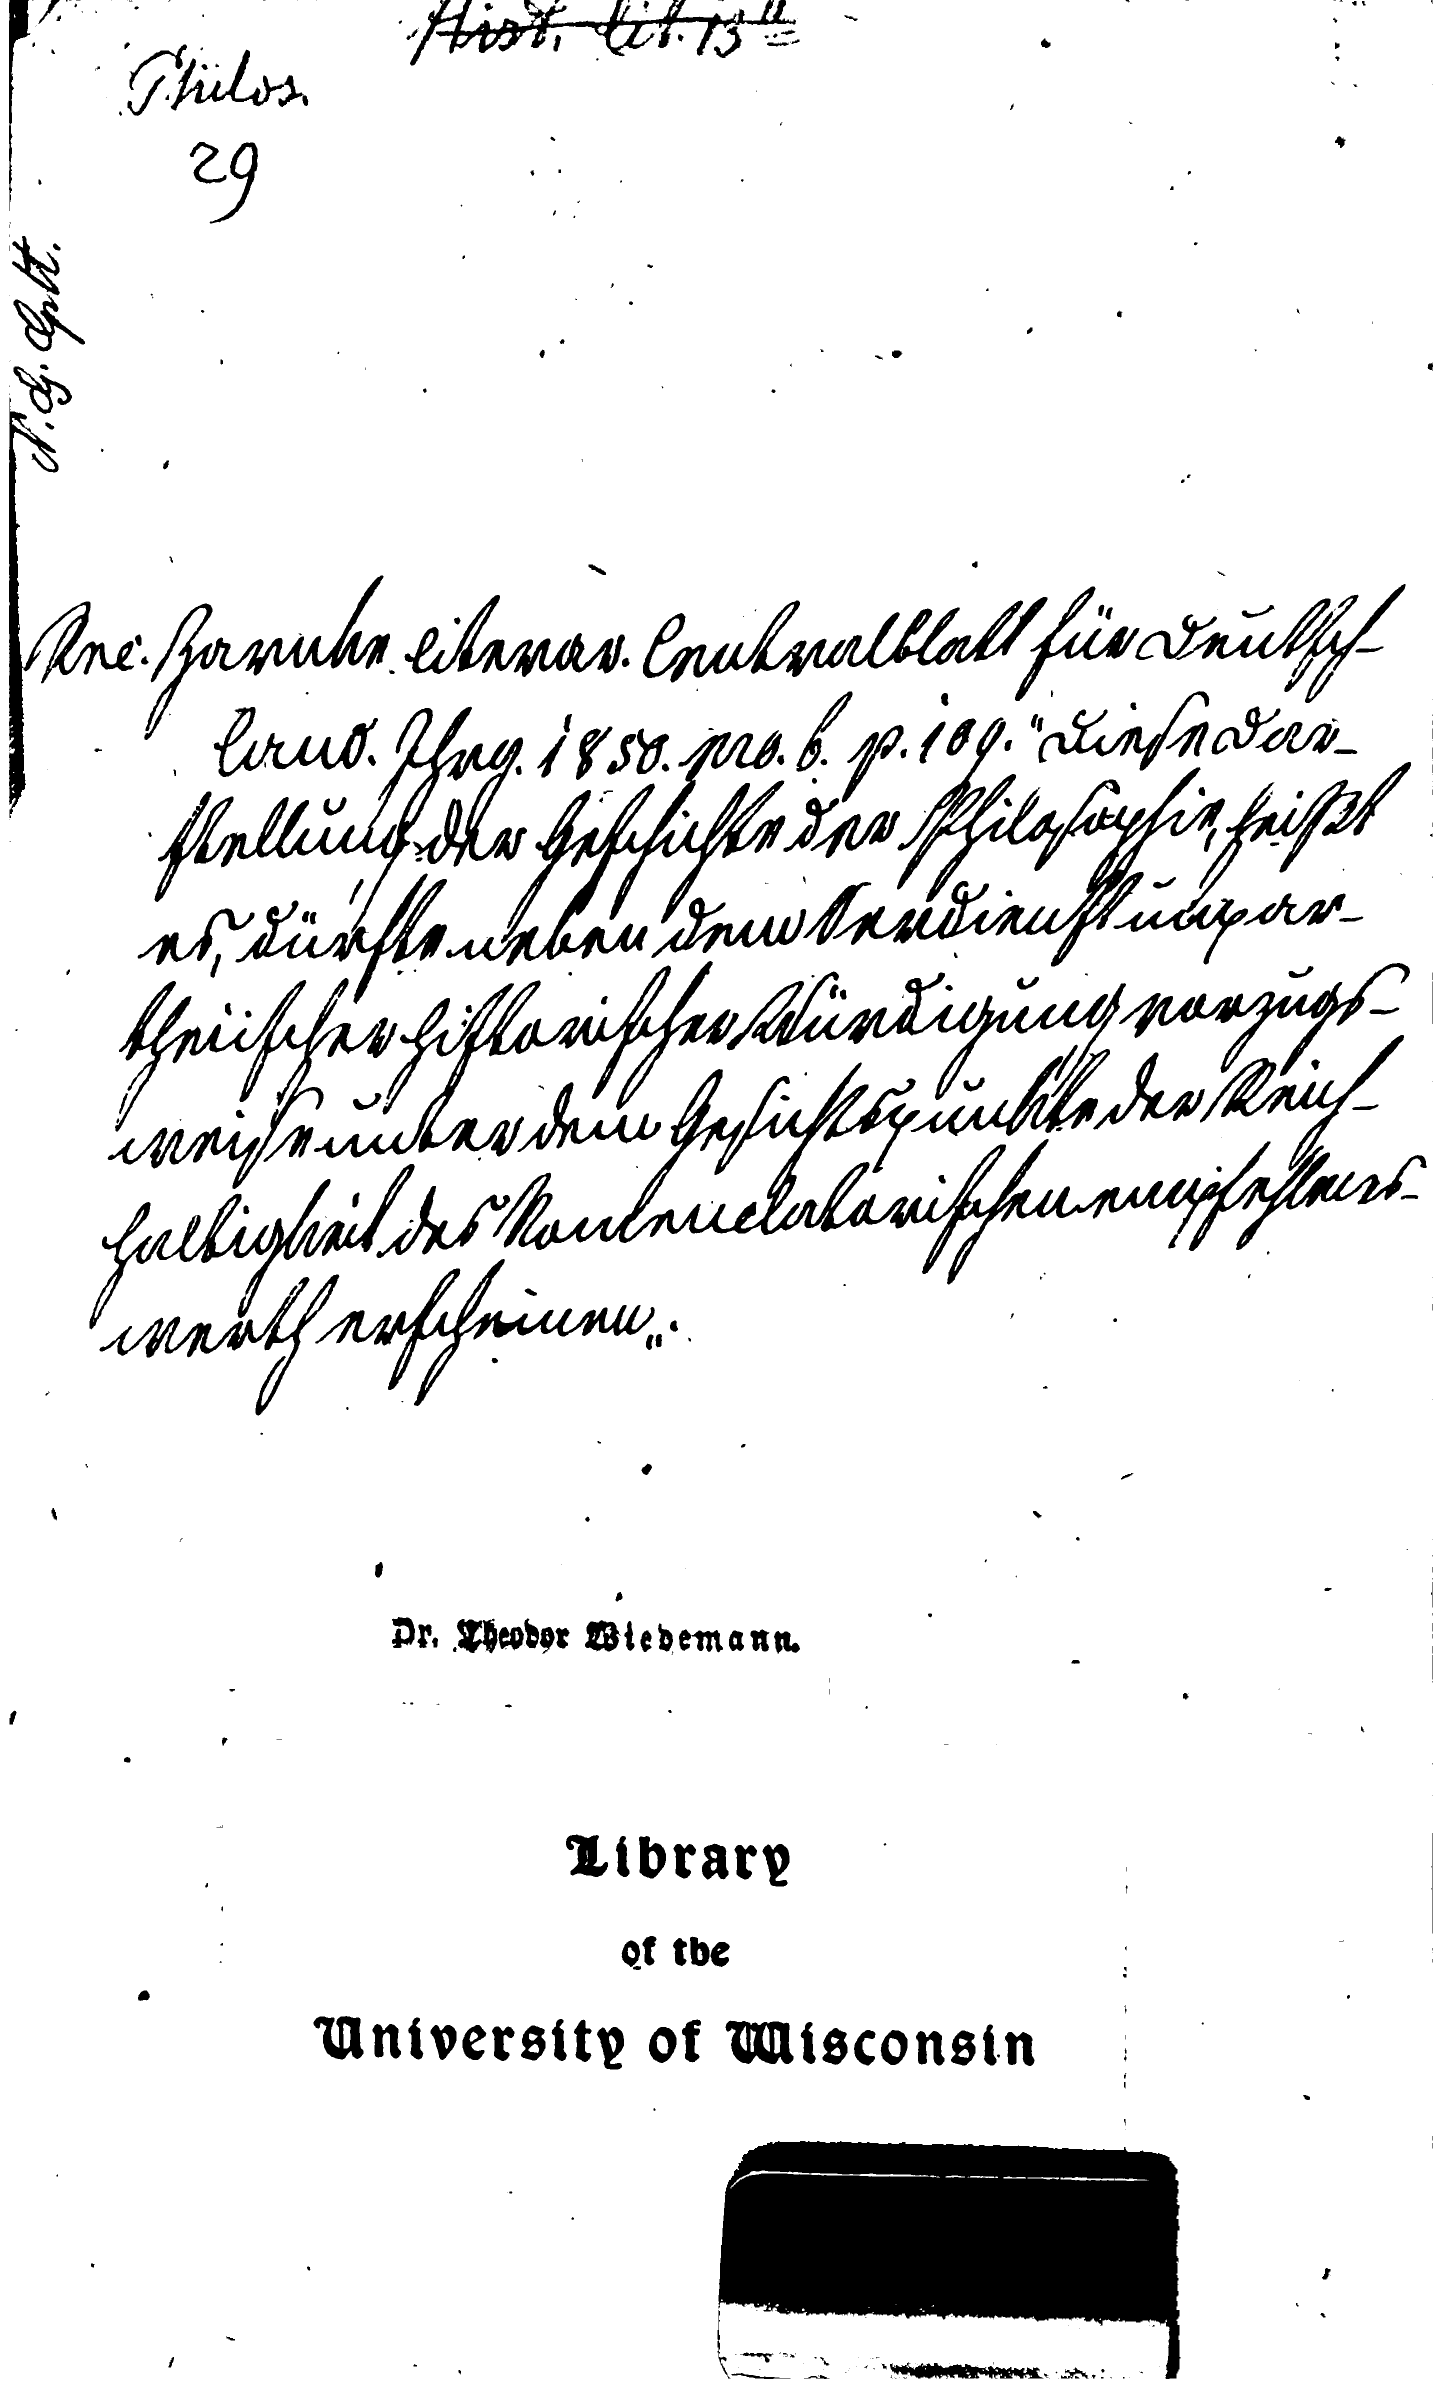 Hist. Lit. 13
Philos.
29
Rec. Zarncke literar. Centralblatt für Deutsch-
land. Jhrg. 1850. nro. 6. p. 109. "Diese Dar-
stellung der Geschichte der Philosophie, heißt
es, dürfte neben dem Verdienst unpar-
theiischer historischer Würdigung vorzugs-
weise unter dem Gesichtspunkte der Reich-
haltigkeit des Nomenclatorischen empfehlens-
werth erscheinen„.
Dr. Theodor Wiedemann.
Library
of the
University of Wisconsin